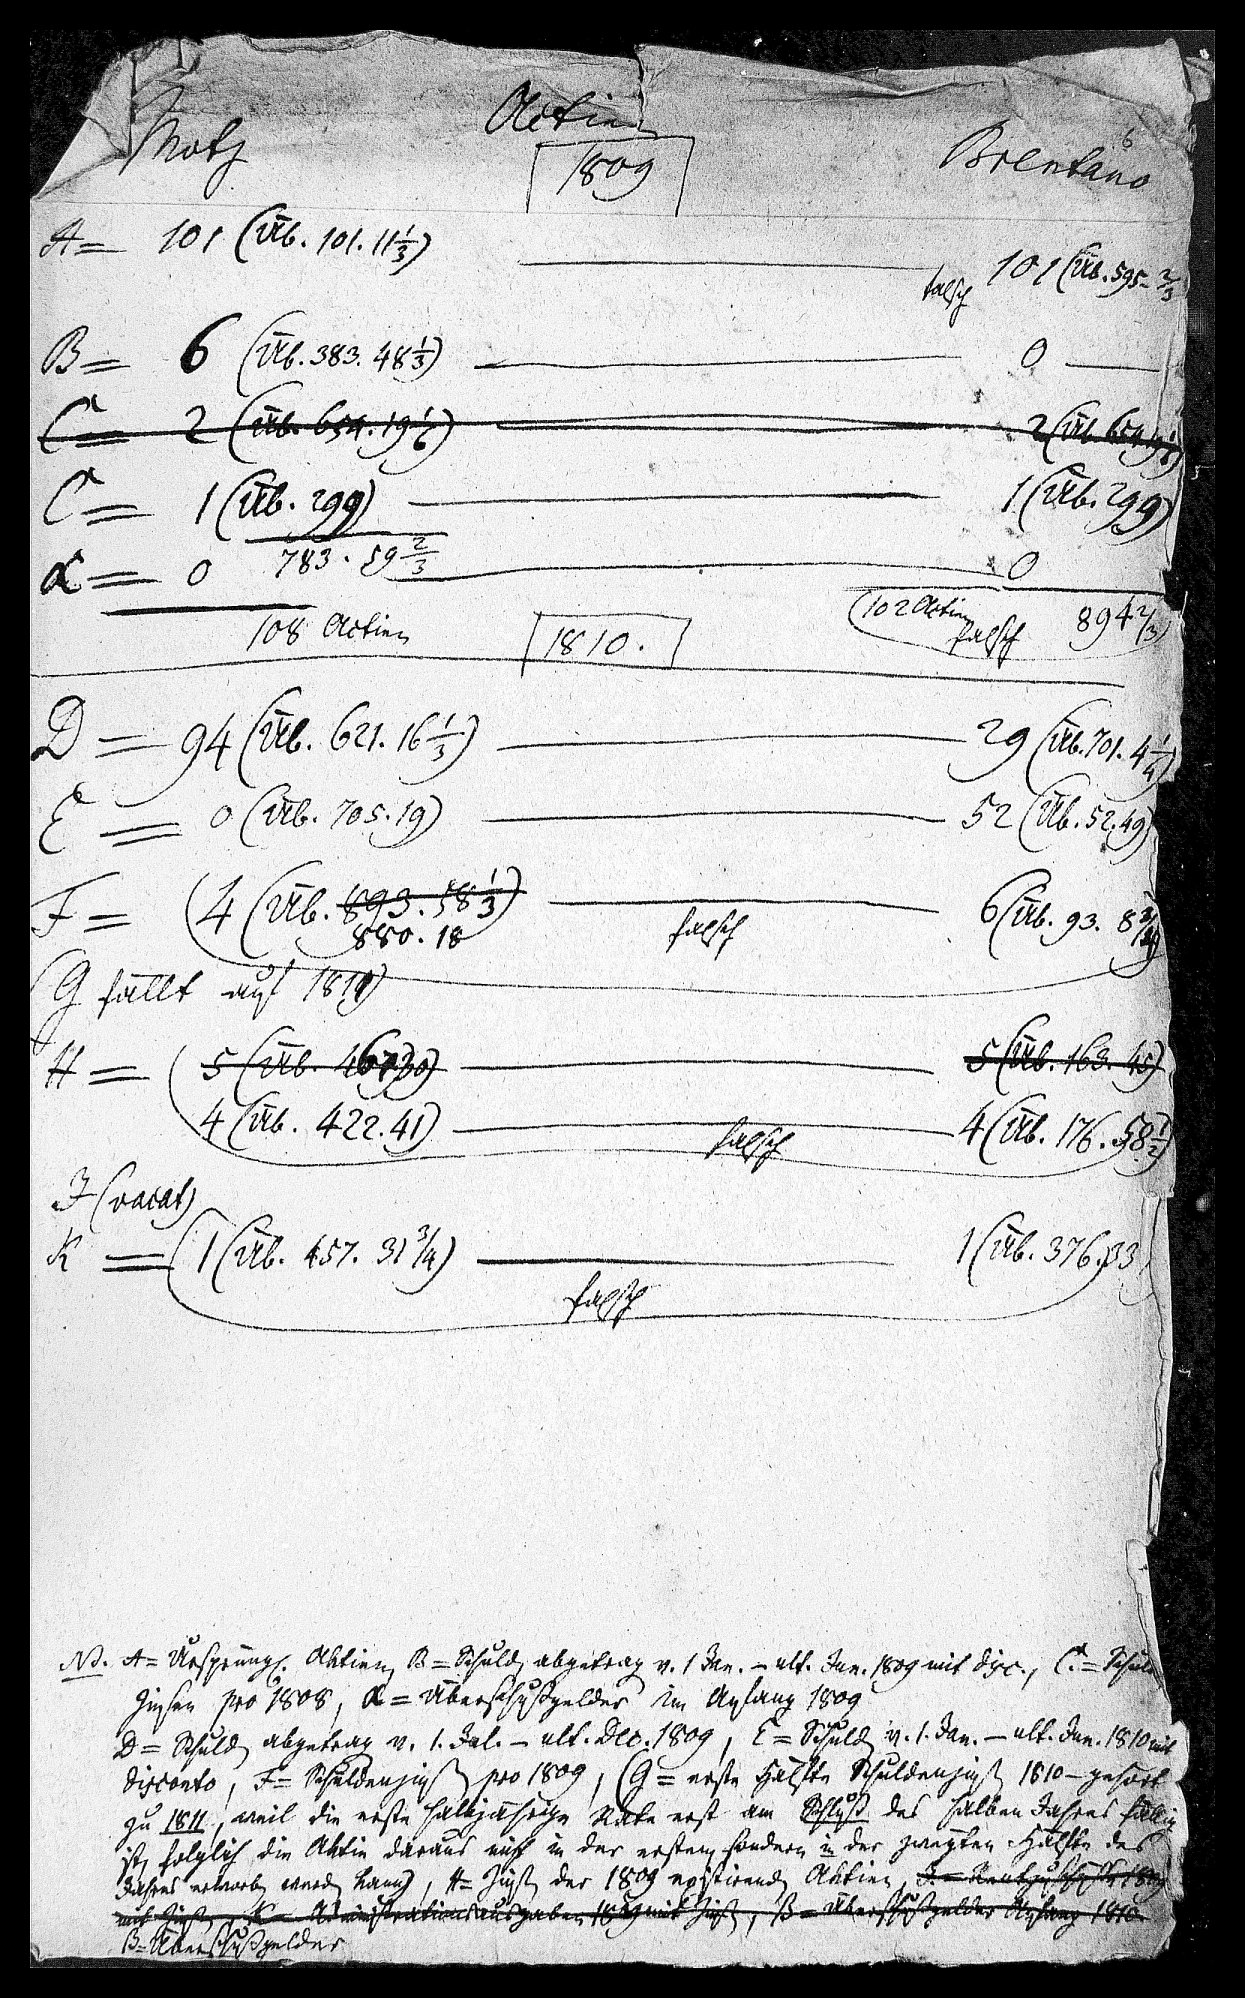 Actien
Motz 1809 Brentano 6
A = 101 (Üb. 101. 11 1/3) falsch 101 (Üb. 595 - 2/3
B = 6 (Üb. 383. 48 1/3) 0
C = 2 (Üb. 654. 19 1/6) 2 (Üb. 654 19 1/6)
C = 1 (Üb. 299) 1 (Üb. 299)
α = 0 783. 59 2/3 0
108 Actien 1810. (102 Actien falsch 894 2/3)
D = 94 (Üb. 621. 16 1/3) 29 (Üb. 701. 4 1/4)
E = 0 (Üb. 705. 19) 52 (Üb. 52. 49)
F = (4 (Üb. 893. 58 1/3) falsch 6 (Üb. 93. 8
880. 18
(G fällt auf 1811)
H = 5 (Üb. 467 30) 5 (Üb. 163. 45)
4 (Üb. 422. 41) falsch 4 (Üb. 176. 58 1/2)
J (vacat)
K = (1 (Üb. 457. 31 3/4) falsch 1 (Üb. 376. 33)
NB. A = Ursprüngl. Aktien, B = Schuld abgetrag v. 1 Jan. - ult. Jun. 1809 mit disc., C = Schuld
Zinsen pro 1808, α = Überschußgelder im Anfang 1809
D = Schuld abgetrag v. 1. Jul. - ult. Dec. 1809, E = Schuld v. 1. Jan. - ult. Jun. 1810 mit
disconto, F = Schuldenzinß pro 1809, (G = erste Hälfte Schuldenzinß 1810 - gehört
zu 1811, weil die erste halbjährige Rate erst am Schluß des halben Jahres fällig
ist, folglich die Aktie daraus nicht in der ersten sondern in der zweyten Hälfte des
Jahres erworb werd kann), H = Zinß der 1809 existirend Aktien, J = 1809
mit Zinß, K = Administrationsausgaben 1809 mit Zinß, β = Überschußgelder Anfang 1810
β = Überschußgelder